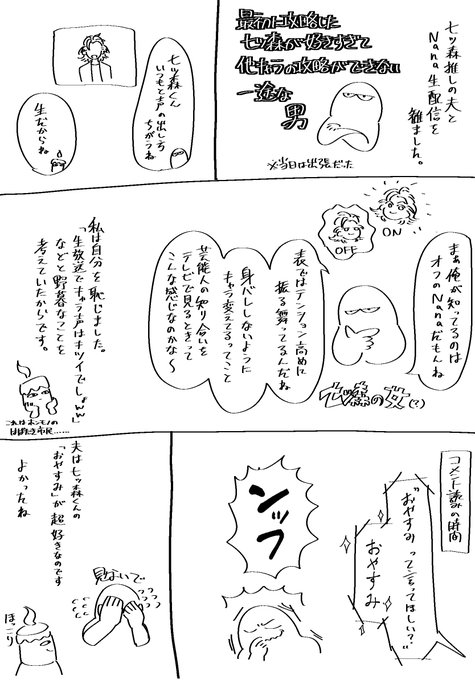 七ツ森推しの夫と
Nana生配信を
観ました。
最初に攻略した
七ツ森が好きすぎて
他キャラの攻略ができない
一途な
男
※当日は出張だった
七ツ森くん
いつもと声の出し方
ちがうね
生だからね
まぁ俺が知ってるのは
オフのNanaだもんね
ON
OFF
七ツ森の女(?)
表ではテンション高めに
振る舞ってるんだね
身バレしないように
キャラ変えてるってこと
芸能人の知り合いを
テレビで見るときって
こんな感じなのかな〜
私は自分を恥じました。
「生放送でキャラ声はキツイでしょww」
などと野暮なことを
考えていたからです。
これはホンモノの
はばたき市民……
コメント読みの時間
"おやすみ"って言ってほしい?
おやすみ
ンッフ
夫は七ツ森くんの
「おやすみ」が超好きなのです
よかったね
見ないで
ほっこり